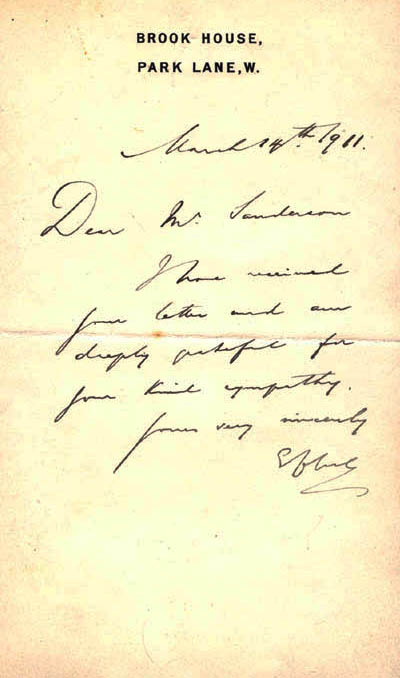 BROOK HOUSE,
PARK LANE, W.
March 14th 1911.
Dear Mr. Sanderson
I have received
your letter and am
deeply grateful for
your kind sympathy.
Yours very sincerely